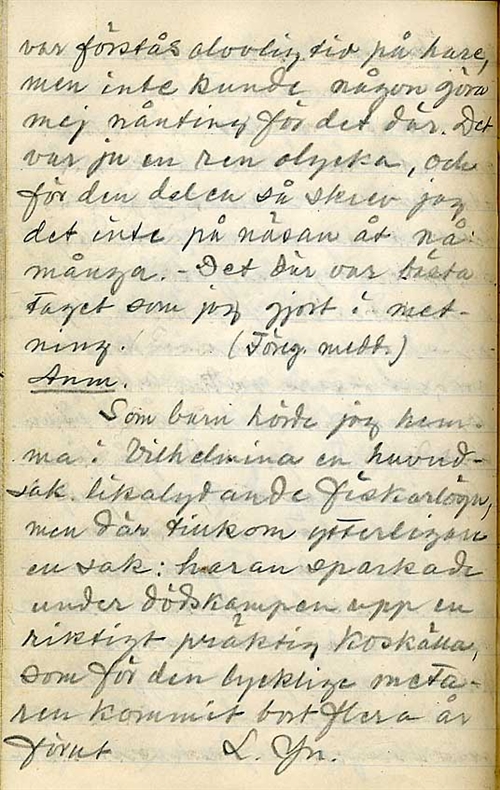 var förstås olovlig tid på hare,
men inte kunde någon göra
mej nånting för det där. Det
var ju en ren olycka, och
för den delen så skrev jag
det inte på näsan åt nå
många. - Det där var bästa
taget som jag gjort i met-
ning. (Föreg. medd.)
Anm.
Som barn hörde jag hem-
ma i Vilhelmina en huvud-
sak. likalydande fiskarlögn,
men där tillkom ytterligare
en sak: haran sparkade
under dödskampen upp en
riktigt präktig koskälla,
som för den lycklige meta-
ren kommit bort flera år
förut L. Yn.